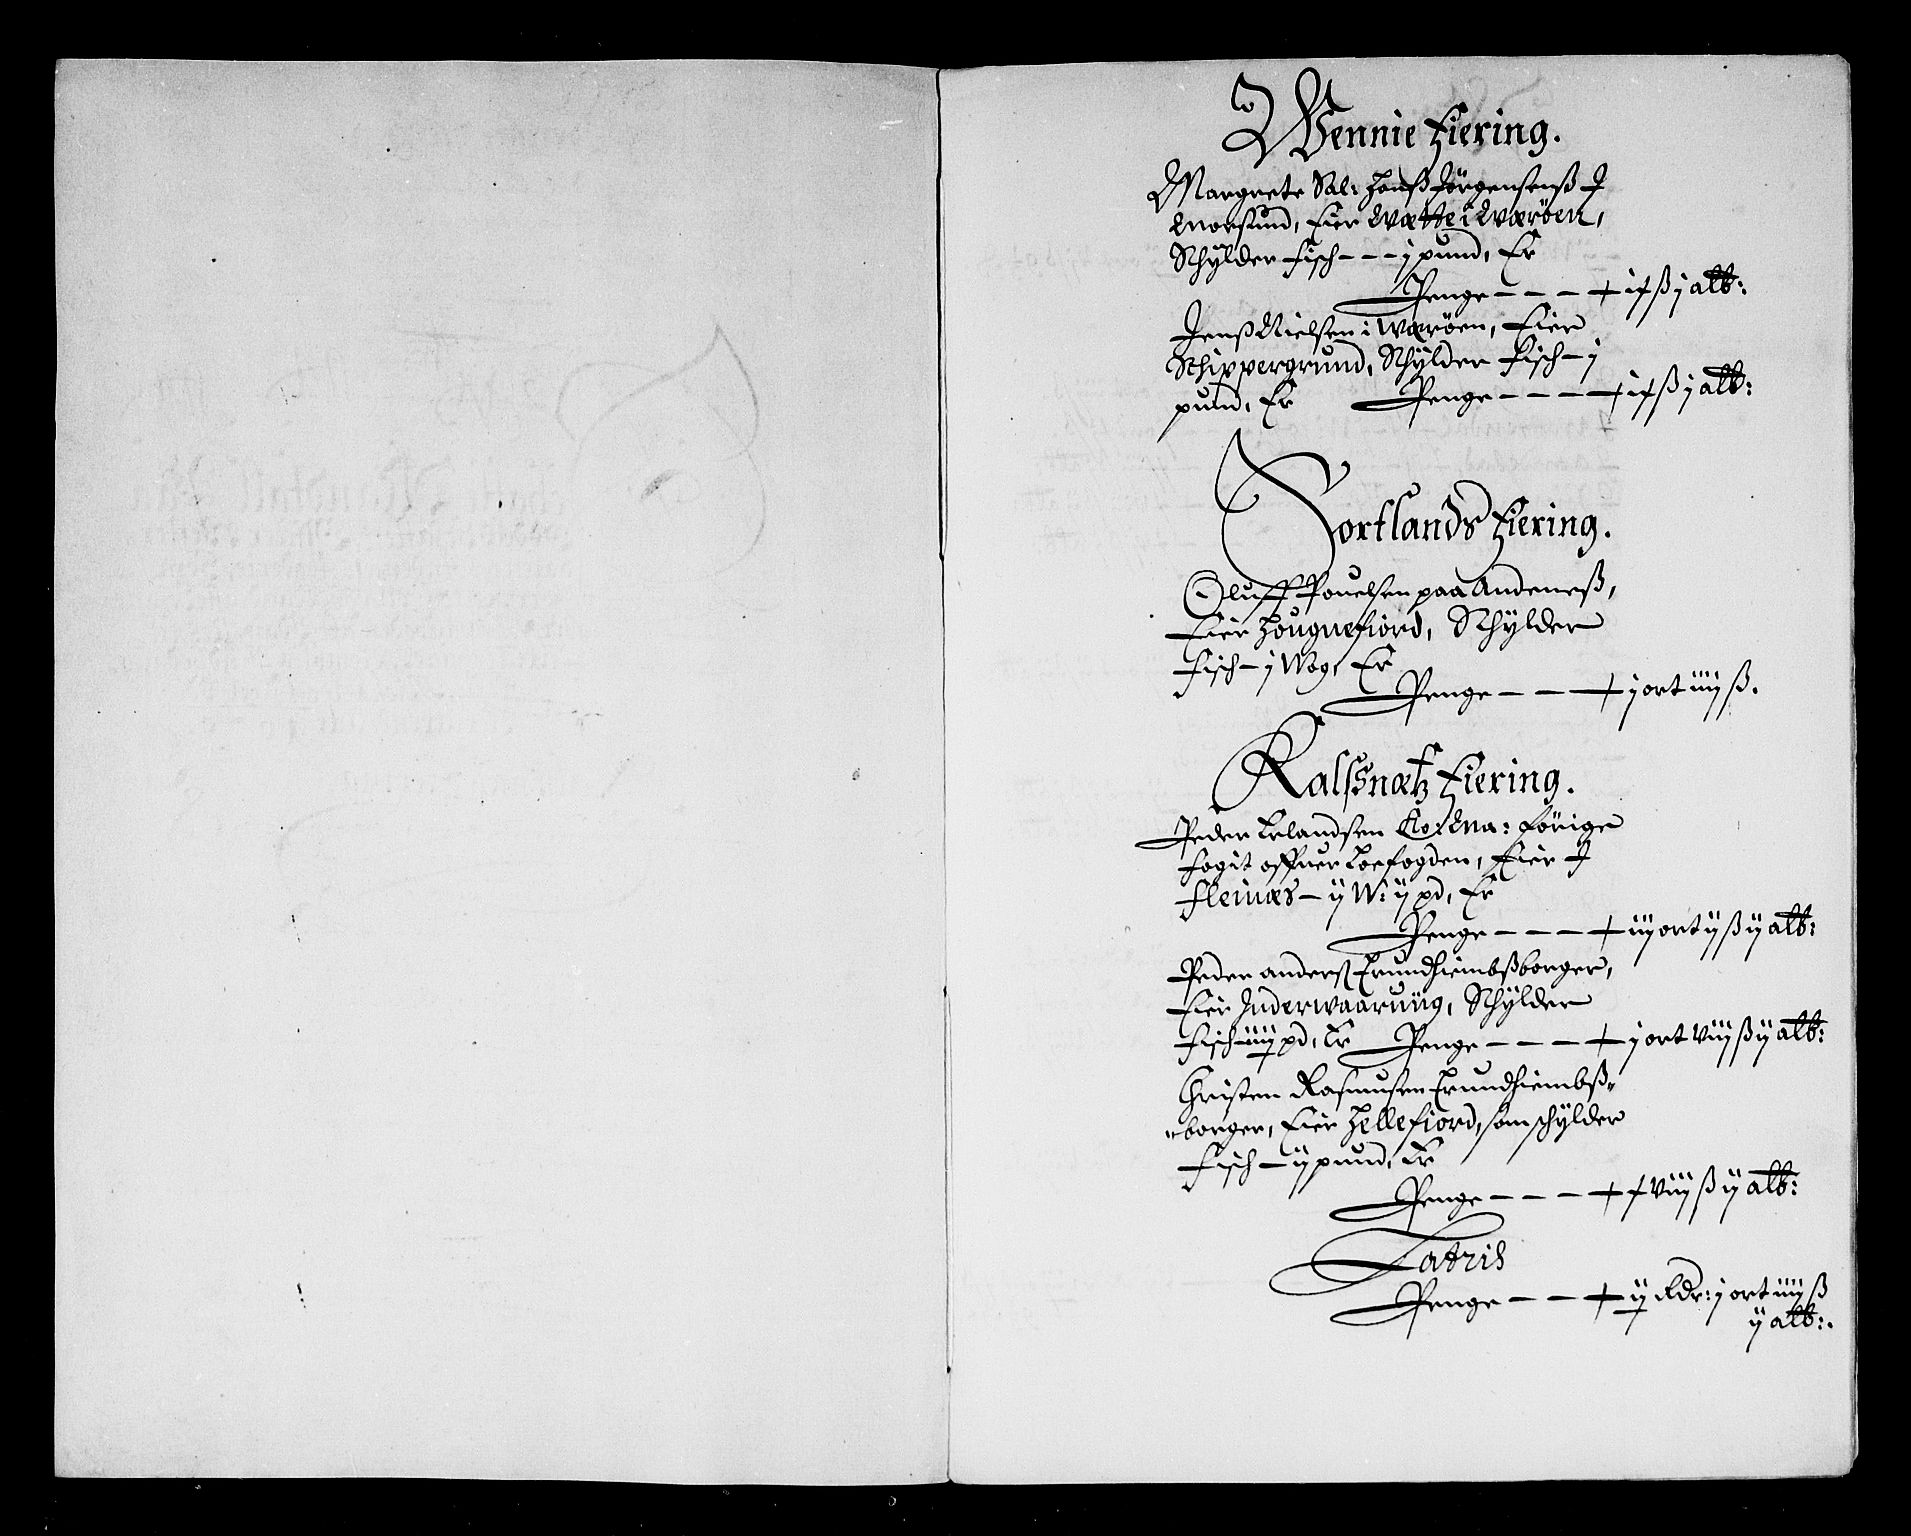 Wennie fiering.
Margrete Sal: Hanß Jörgensenß J
Morsund, Eier Wette i Wæröen,
Schÿlder fisch - - - j pund, Er
Penge - - - - ß j alb:
Jenß Nielsen i Wæröen, Eier
Schippergrund, Schÿlder fisch - j
pund, Er Penge - - - - ß j alb:
Sortlands fiering.
Oluff Pouelsen paa Andeneß,
Eier Hougnefiord, Schÿlder
fisch - j Wog, Er
Penge - - - j ort iiij ß.
Kalsßnæs fiering.
Peder Erlandsen Ko: Ma: förige
fogit offuer Loefogden, Eier J
fleinæs - ij W: ij pd, Er
Penge - - - - iij ort ij ß ij alb:
Peder anderß Trundhiembßborger,
Eier Inderwaaruiig, Schÿlder
fisch - pd, Er Penge - - - - j ort viij ß ij alb:
Christen Rasmusen Trundhiembß-
borger, Eier Hellefiord, som schÿlder
fisch - ij pund, Er
Penge - - - - viij ß ij alb:
Latris
Penge - - - Rdr: j ort iiij ß
ij alb:.